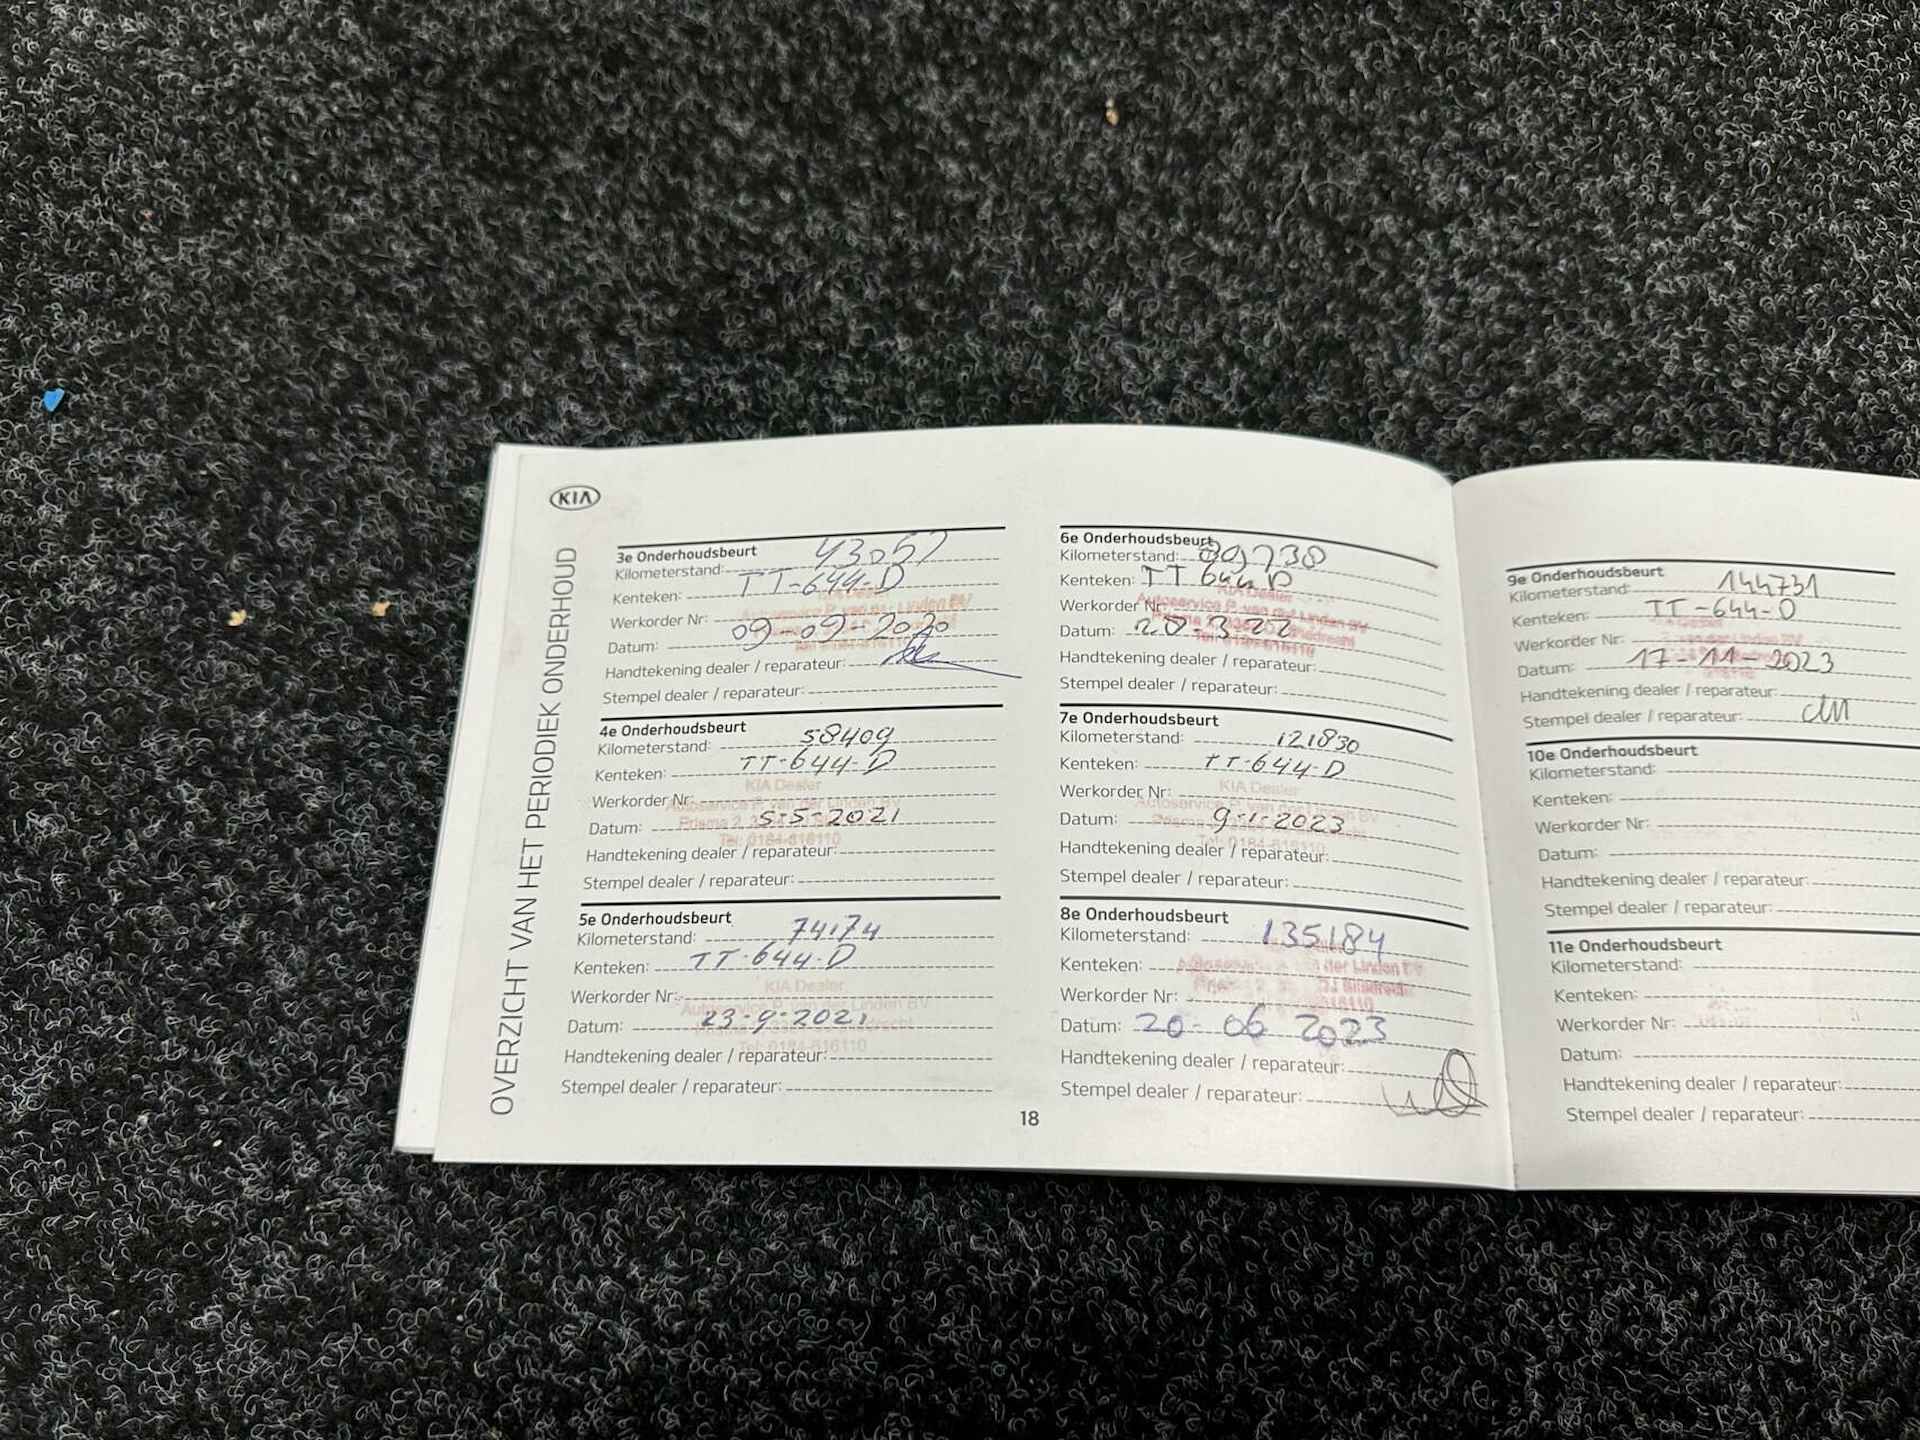 KIA
OVERZICHT VAN HET PERIODIEK ONDERHOUD
3e Onderhoudsbeurt
Kilometerstand: 43057
Kenteken: TT-644-D
Autoservice P. van der Linden BV
Werkorder Nr:
Datum: 09-09-2020
Handtekening dealer / reparateur:
Stempel dealer / reparateur:
4e Onderhoudsbeurt
Kilometerstand: 58409
Kenteken: TT-644-D
KIA Dealer
Werkorder Nr:
Autoservice P. van der Linden BV
Prisma 2,
Datum: 5-5-2021
Tel: 0184-616110
Handtekening dealer / reparateur:
Stempel dealer / reparateur:
5e Onderhoudsbeurt
Kilometerstand: 74174
Kenteken: TT-644-D
KIA Dealer
Werkorder Nr:
Autoservice P. van der Linden BV
Datum: 23-9-2021
Tel: 0184-616110
Handtekening dealer / reparateur:
Stempel dealer / reparateur:
6e Onderhoudsbeurt
Kilometerstand: 89738
Kenteken: TT 644 D
KIA Dealer
Autoservice P. van der Linden BV
Werkorder Nr:
Datum: 28 3 22
Handtekening dealer / reparateur:
Stempel dealer / reparateur:
7e Onderhoudsbeurt
Kilometerstand: 121830
Kenteken: TT-644-D
KIA Dealer
Werkorder Nr:
Autoservice P. van der Linden BV
Datum: 9-1-2023
Tel: 0184-616110
Handtekening dealer / reparateur:
Stempel dealer / reparateur:
8e Onderhoudsbeurt
Kilometerstand: 135184
Kenteken:
der Linden BV
Werkorder Nr:
Datum: 20-06 2023
Handtekening dealer / reparateur:
Stempel dealer / reparateur:
18
9e Onderhoudsbeurt
Kilometerstand: 144731
Kenteken: TT-644-D
Werkorder Nr:
Datum: 17-11-2023
Handtekening dealer / reparateur:
Stempel dealer / reparateur:
10e Onderhoudsbeurt
Kilometerstand:
Kenteken:
Werkorder Nr:
Datum:
Handtekening dealer / reparateur:
Stempel dealer / reparateur:
11e Onderhoudsbeurt
Kilometerstand:
Kenteken:
Werkorder Nr:
Datum:
Handtekening dealer / reparateur:
Stempel dealer / reparateur: